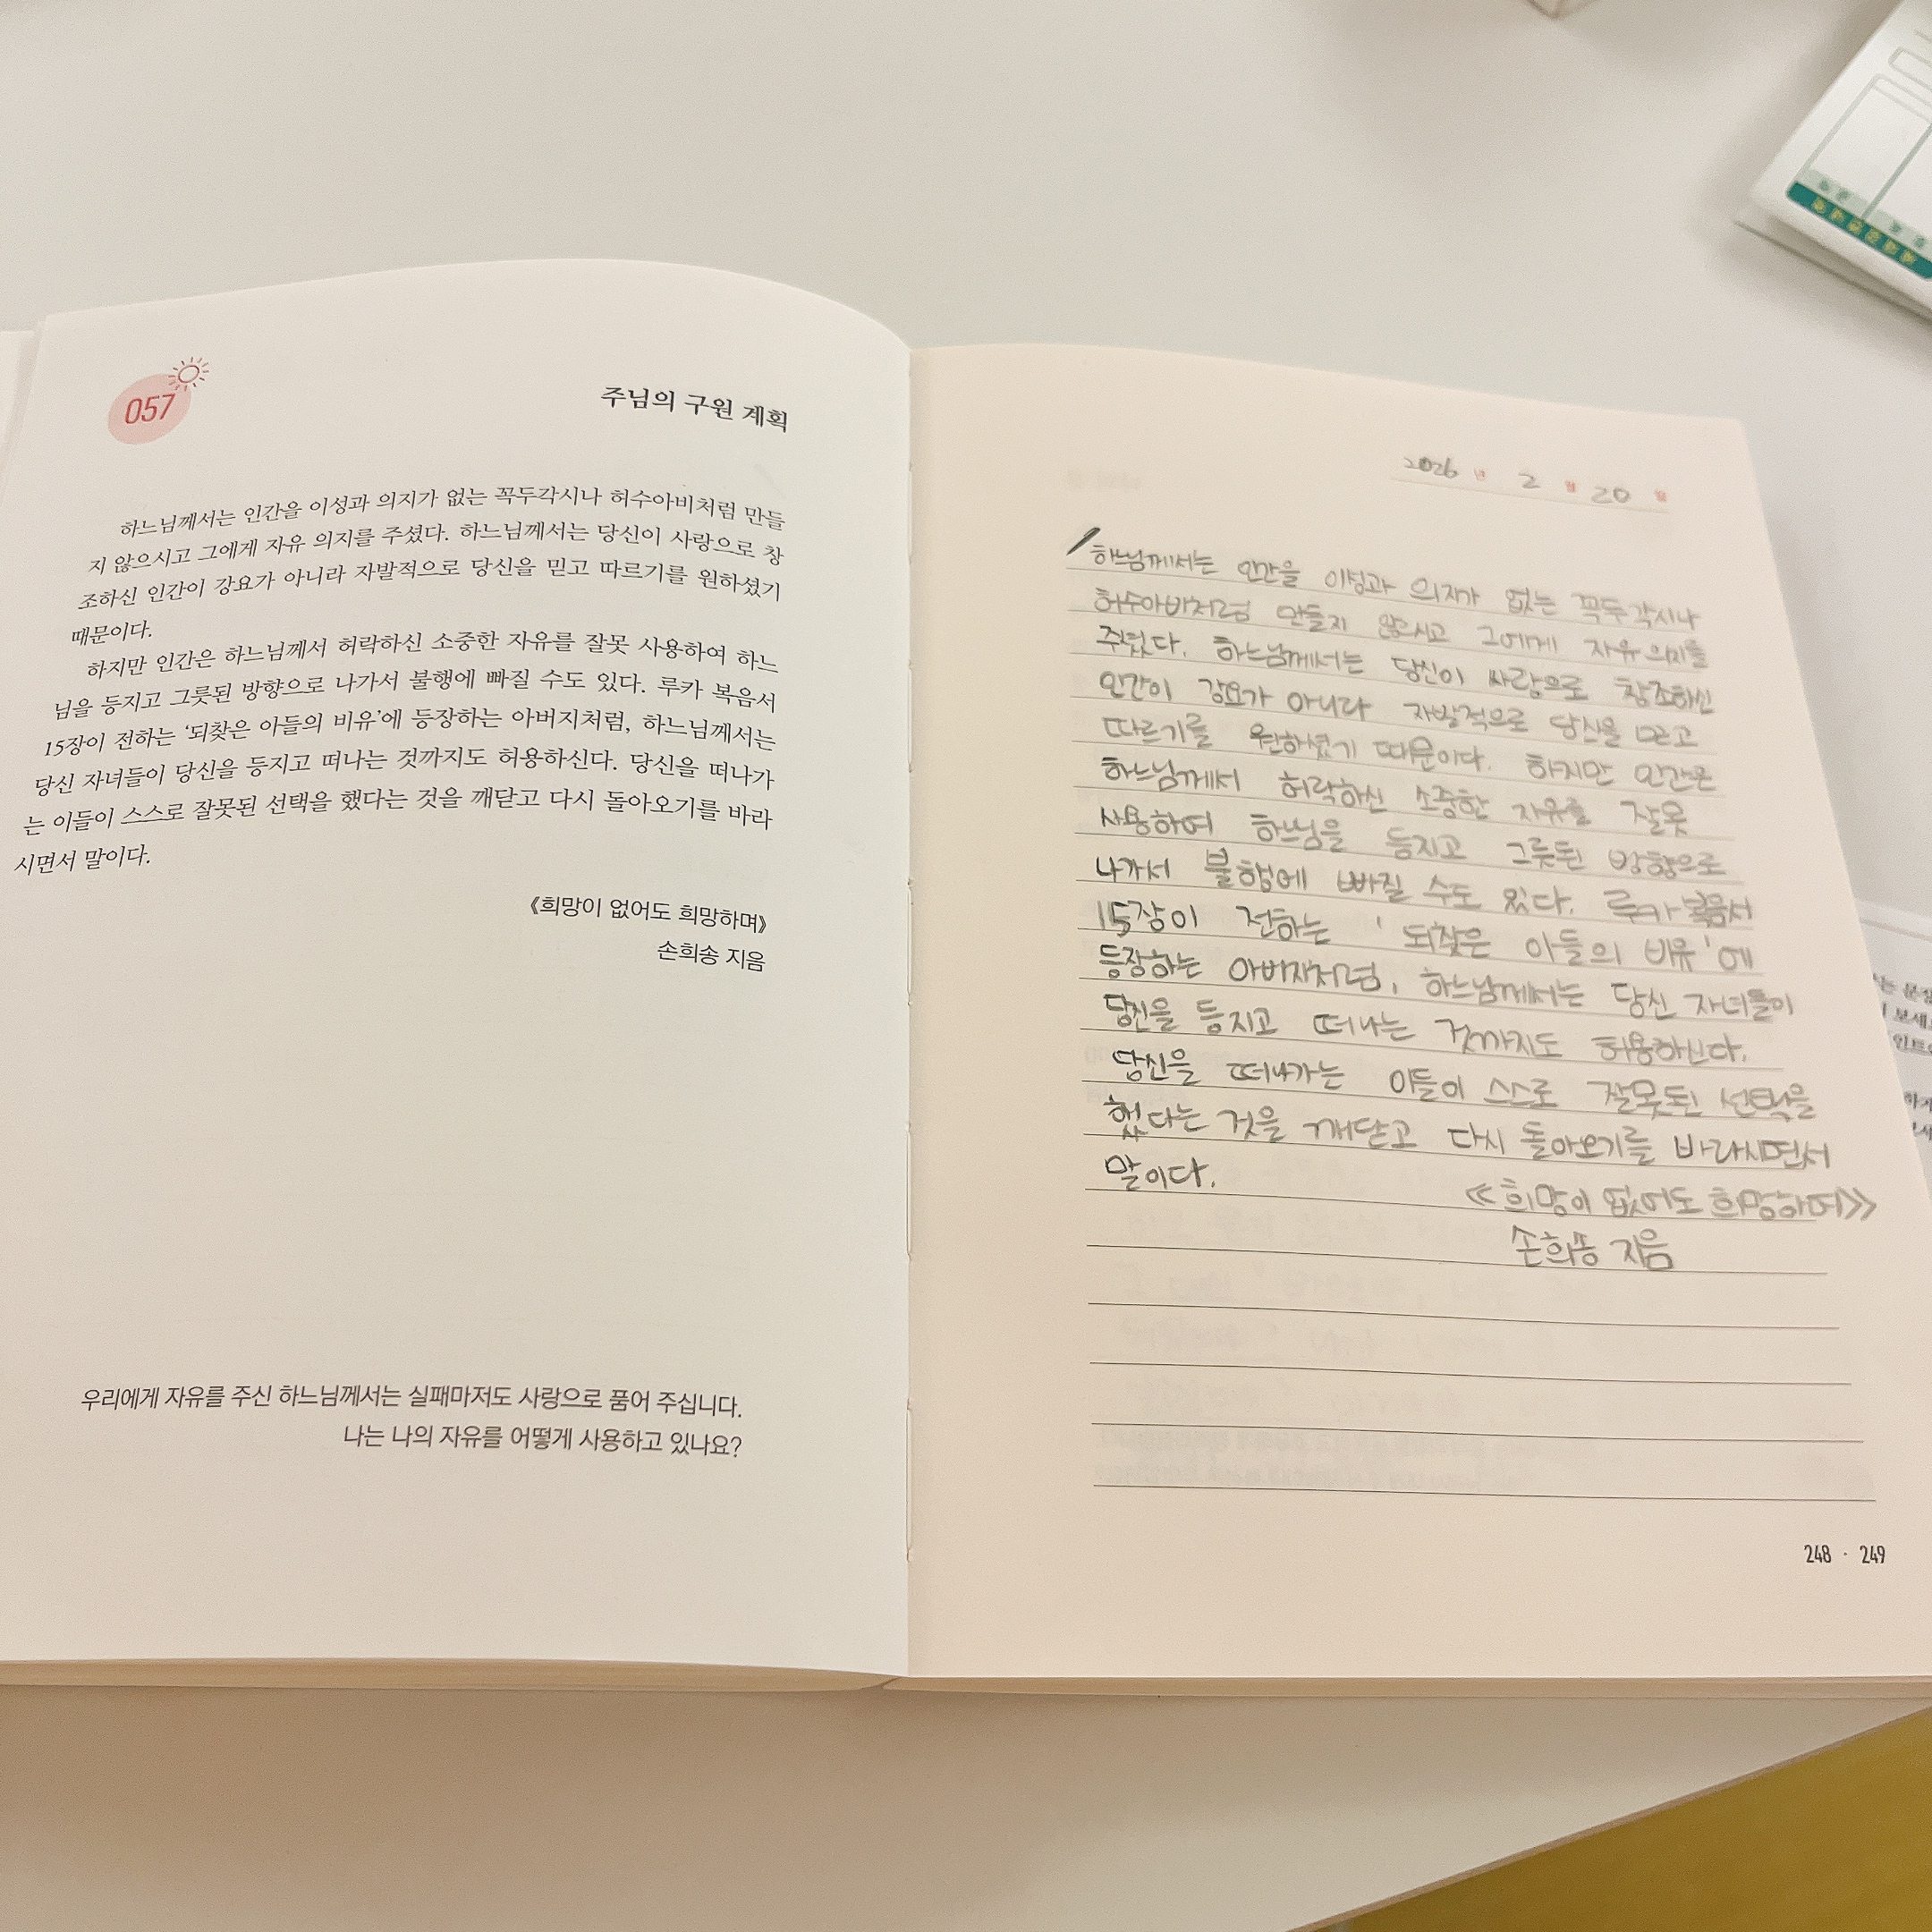 057
주님의 구원 계획
하느님께서는 인간을 이성과 의지가 없는 꼭두각시나 허수아비처럼 만들
지 않으시고 그에게 자유 의지를 주셨다. 하느님께서는 당신이 사랑으로 창
조하신 인간이 강요가 아니라 자발적으로 당신을 믿고 따르기를 원하셨기
때문이다.
하지만 인간은 하느님께서 허락하신 소중한 자유를 잘못 사용하여 하느
님을 등지고 그릇된 방향으로 나가서 불행에 빠질 수도 있다. 루카 복음서
15장이 전하는 ‘되찾은 아들의 비유’에 등장하는 아버지처럼, 하느님께서는
당신 자녀들이 당신을 등지고 떠나는 것까지도 허용하신다. 당신을 떠나가
는 이들이 스스로 잘못된 선택을 했다는 것을 깨닫고 다시 돌아오기를 바라
시면서 말이다.
《희망이 없어도 희망하며》
손희송 지음
우리에게 자유를 주신 하느님께서는 실패마저도 사랑으로 품어 주십니다.
나는 나의 자유를 어떻게 사용하고 있나요?
2026 년 2 월 20 일
하느님께서는 인간을 이성과 의지가 없는 꼭두각시나
허수아비처럼 만들지 않으시고 그에게 자유 의지를
주셨다. 하느님께서는 당신이 사랑으로 창조하신
인간이 강요가 아니라 자발적으로 당신을 믿고
따르기를 원하셨기 때문이다. 하지만 인간은
하느님께서 허락하신 소중한 자유를 잘못
사용하여 하느님을 등지고 그릇된 방향으로
나가서 불행에 빠질 수도 있다. 루카 복음서
15장이 전하는 '되찾은 아들의 비유'에
등장하는 아버지처럼, 하느님께서는 당신 자녀들이
당신을 등지고 떠나는 것까지도 허용하신다.
당신을 떠나가는 이들이 스스로 잘못된 선택을
했다는 것을 깨닫고 다시 돌아오기를 바라시면서
말이다.
≪희망이 없어도 희망하며≫
손희송 지음
248 · 249